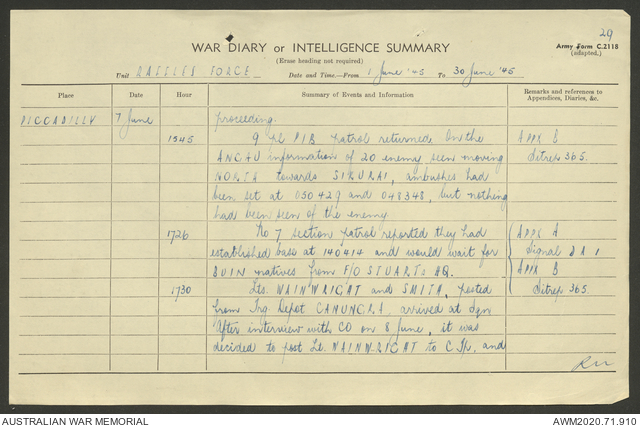 29
WAR DIARY or INTELLIGENCE SUMMARY
Army Form C.2118
(adapted.)
(Erase heading not required)
Unit RAFFLES FORCE Date and Time.—From 1 June '45 To 30 June '45
Place Date Hour Summary of Events and Information Remarks and references to Appendices, Diaries, &c.
PICCADILLY 7 June proceeding.
1545 9 Pl PIB patrol returned. On the APPX B
ANGAU information of 20 enemy seen moving Sitrep 365.
NORTH towards SIKURAI, ambushes had
been set at 050429 and 048348, but nothing
had been seen of the enemy
1726 No 7 section patrol reported they had APPX A
established base at 140414 and would wait for Signal
BUIN natives from F/O STUARTs HQ. APPX B
1730 Lts. WAINWRIGHT and SMITH, posted Sitrep 365.
from Trg Depot CANUNGRA, arrived at Sqn
After interview with CO on 8 June, it was
decided to post Lt. WAINWRIGHT to C Tp, and
AUSTRALIAN WAR MEMORIAL
AWM2020.71.910